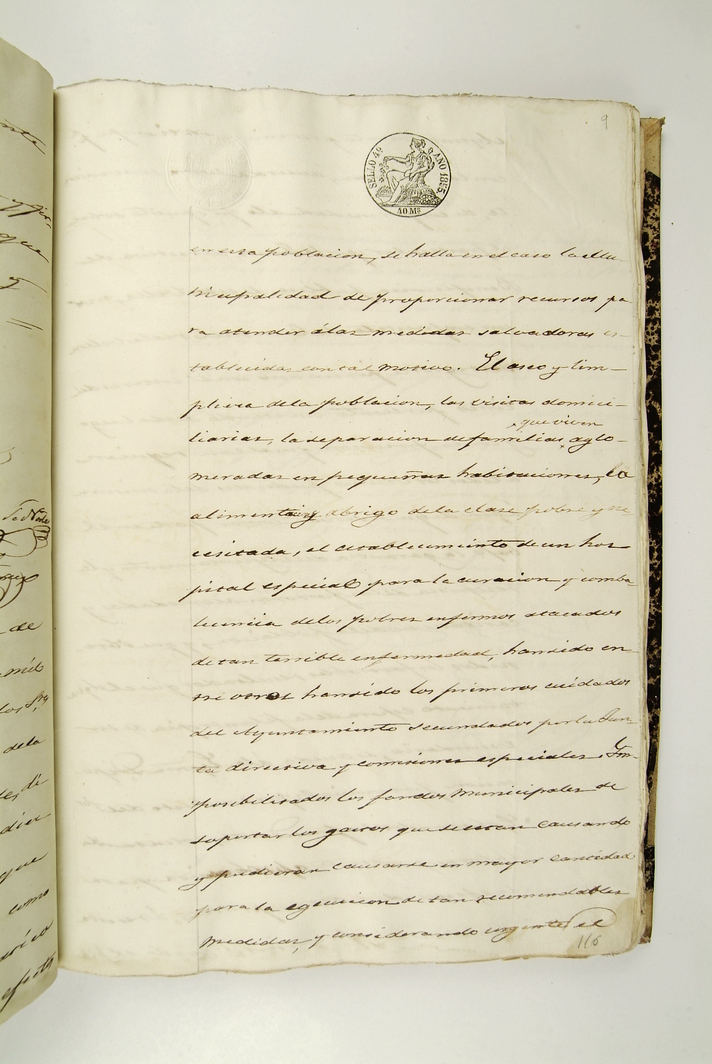 9
SELLO 4º AÑO 1855.
40 Ms
en esta poblacion, se halla en el caso la Mu
nicipalidad de proporcionar recursos pa
ra atender á las medidas salvadoras es-
tablecidas con tal motivo. El aseo y lim-
pieza de la poblacion, las visitas domici-
liarias, la separacion de familias, aglo-
que viven
meradas en pequeñas habitaciones, la
alimentacion y abrigo de la clase pobre y ne
cesitada, el establecimiento de un hos
pital especial para la curacion y comba
lecencia de los pobres enfermos atacados
de tan terrible enfermedad, han sido en
tre otros han sido los primeros cuidados
del Ayuntamiento secundados por la Jun
ta directiva y comisiones especiales. Im-
posibilitados los fondos municipales de
soportar los gastos que se estan causando
y pudieran causarse en mayor cantidad
para la egecucion de tan recomendables
medidas, y considerando urgente el
116
de
mil
los Sres
de la
de
que
como